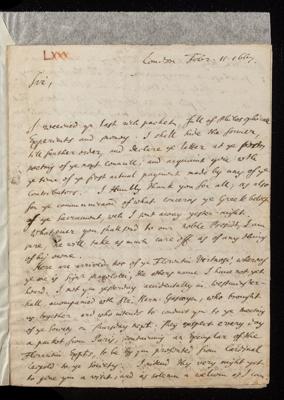 LXX
London Febr. 11. 1667.
Sir,
I received yr last rich packet, full of Philosophicall
Experiments and money. I shall hide the former,
till further order, and declare ye latter at ye first
meeting of ye next Councill, and acquaint you with
ye time of ye first actuall payment made by any of ye
Contributors. I humbly thank you for all; as also
for ye communication of what concerns ye Greek beliefe
of ye Sacrament, wch I put away yester-night.
Whatever you shall send to our noble Presidt, I am
sure, he will take as much care off, as of any thing
of his owne.
Here are arrived two of ye Florentin Virtuosi, whereof
ye one is Sigr Magalotti, the others name I have not yet
heard. I met ym yesterday accidentally in Westminster-
hall, accompanied with Mr. Henr. Gascoyn, who brought
us together, and who intends to conduct ym to ye meeting
of ye Society on thursday next. They expect every day
a packet from Paris, containing an Exemplar of the
Florentin Expts, to be by ym presented from Cardinal
Leopold to ye Society. I intend this very night yet
to give ym a visit, and as solemn a welcom as I can